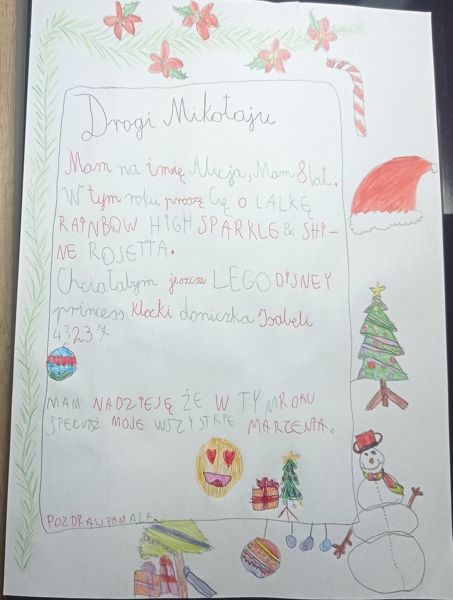 Drogi Mikołaju
Mam na imię Alicja, Mam 8 lat.
W tym roku proszę Cię o LALKĘ
RAINBOW HIGH SPARKLE & SHI-
NE ROSETTA.
Chciałabym jeszcze LEGO DISNEY
princess klocki doniczka Isabeli
43237
MAM NADZIEJĘ ŻE W TYM ROKU
SPEŁNISZ MOJE WSZYSTKIE MARZENIA.
POZDRAWIAM ALA.